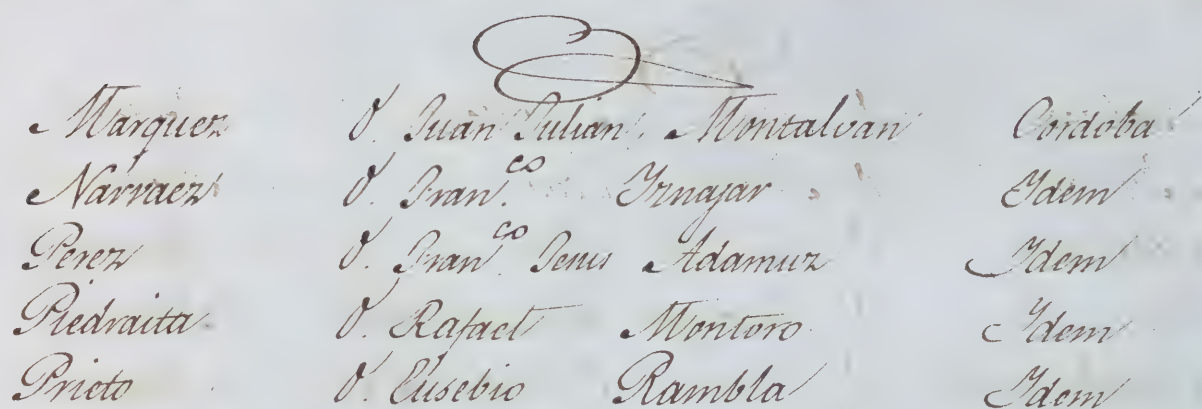 Marquez D. Juan Julian Montalvan Cordoba
Narvaez D. Fran.co Iznajar Idem
Perez D. Fran.co Adamuz Idem
Piedraita D. Rafael Montoro Idem
Prieto D. Eusebio Rambla Idem